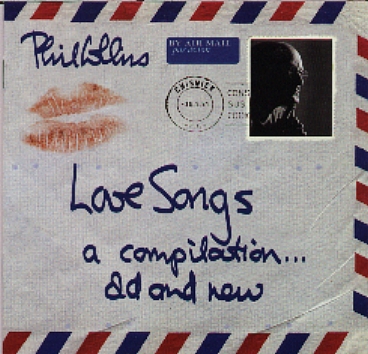 Phil Collins
BY AIR MAIL
PAR AVION
CHISWICK
CONS
SUS
Love Songs
a compilation...
old and new